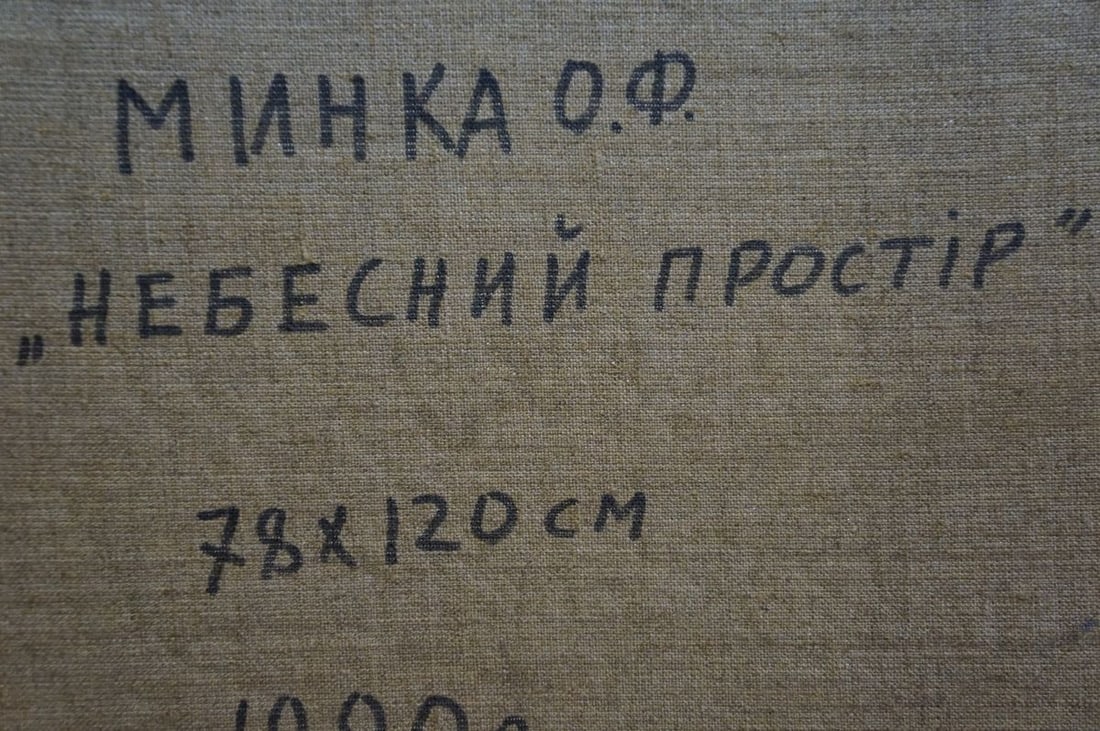 МИНКА О.Ф.
„НЕБЕСНИЙ ПРОСТІР”
78х120 см